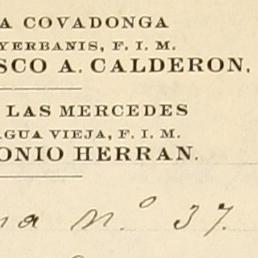 A COVADONGA
YERBANIS, F. I. M.
SCO A. CALDERON,
LAS MERCEDES
AGUA VIEJA, F. I. M.
ONIO HERRAN.
na nº 37.